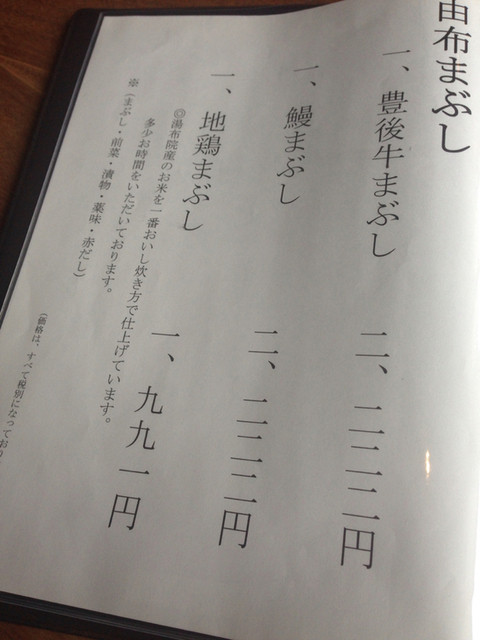 由布まぶし
一、豊後牛まぶし 二、二二二円
一、鰻まぶし 二、二二二円
一、地鶏まぶし 一、九九一円
◎湯布院産のお米を一番おいし炊き方で仕上げています。
多少お時間をいただいております。
※(まぶし・前菜・漬物・薬味・赤だし)
(価格は、すべて税別になってお